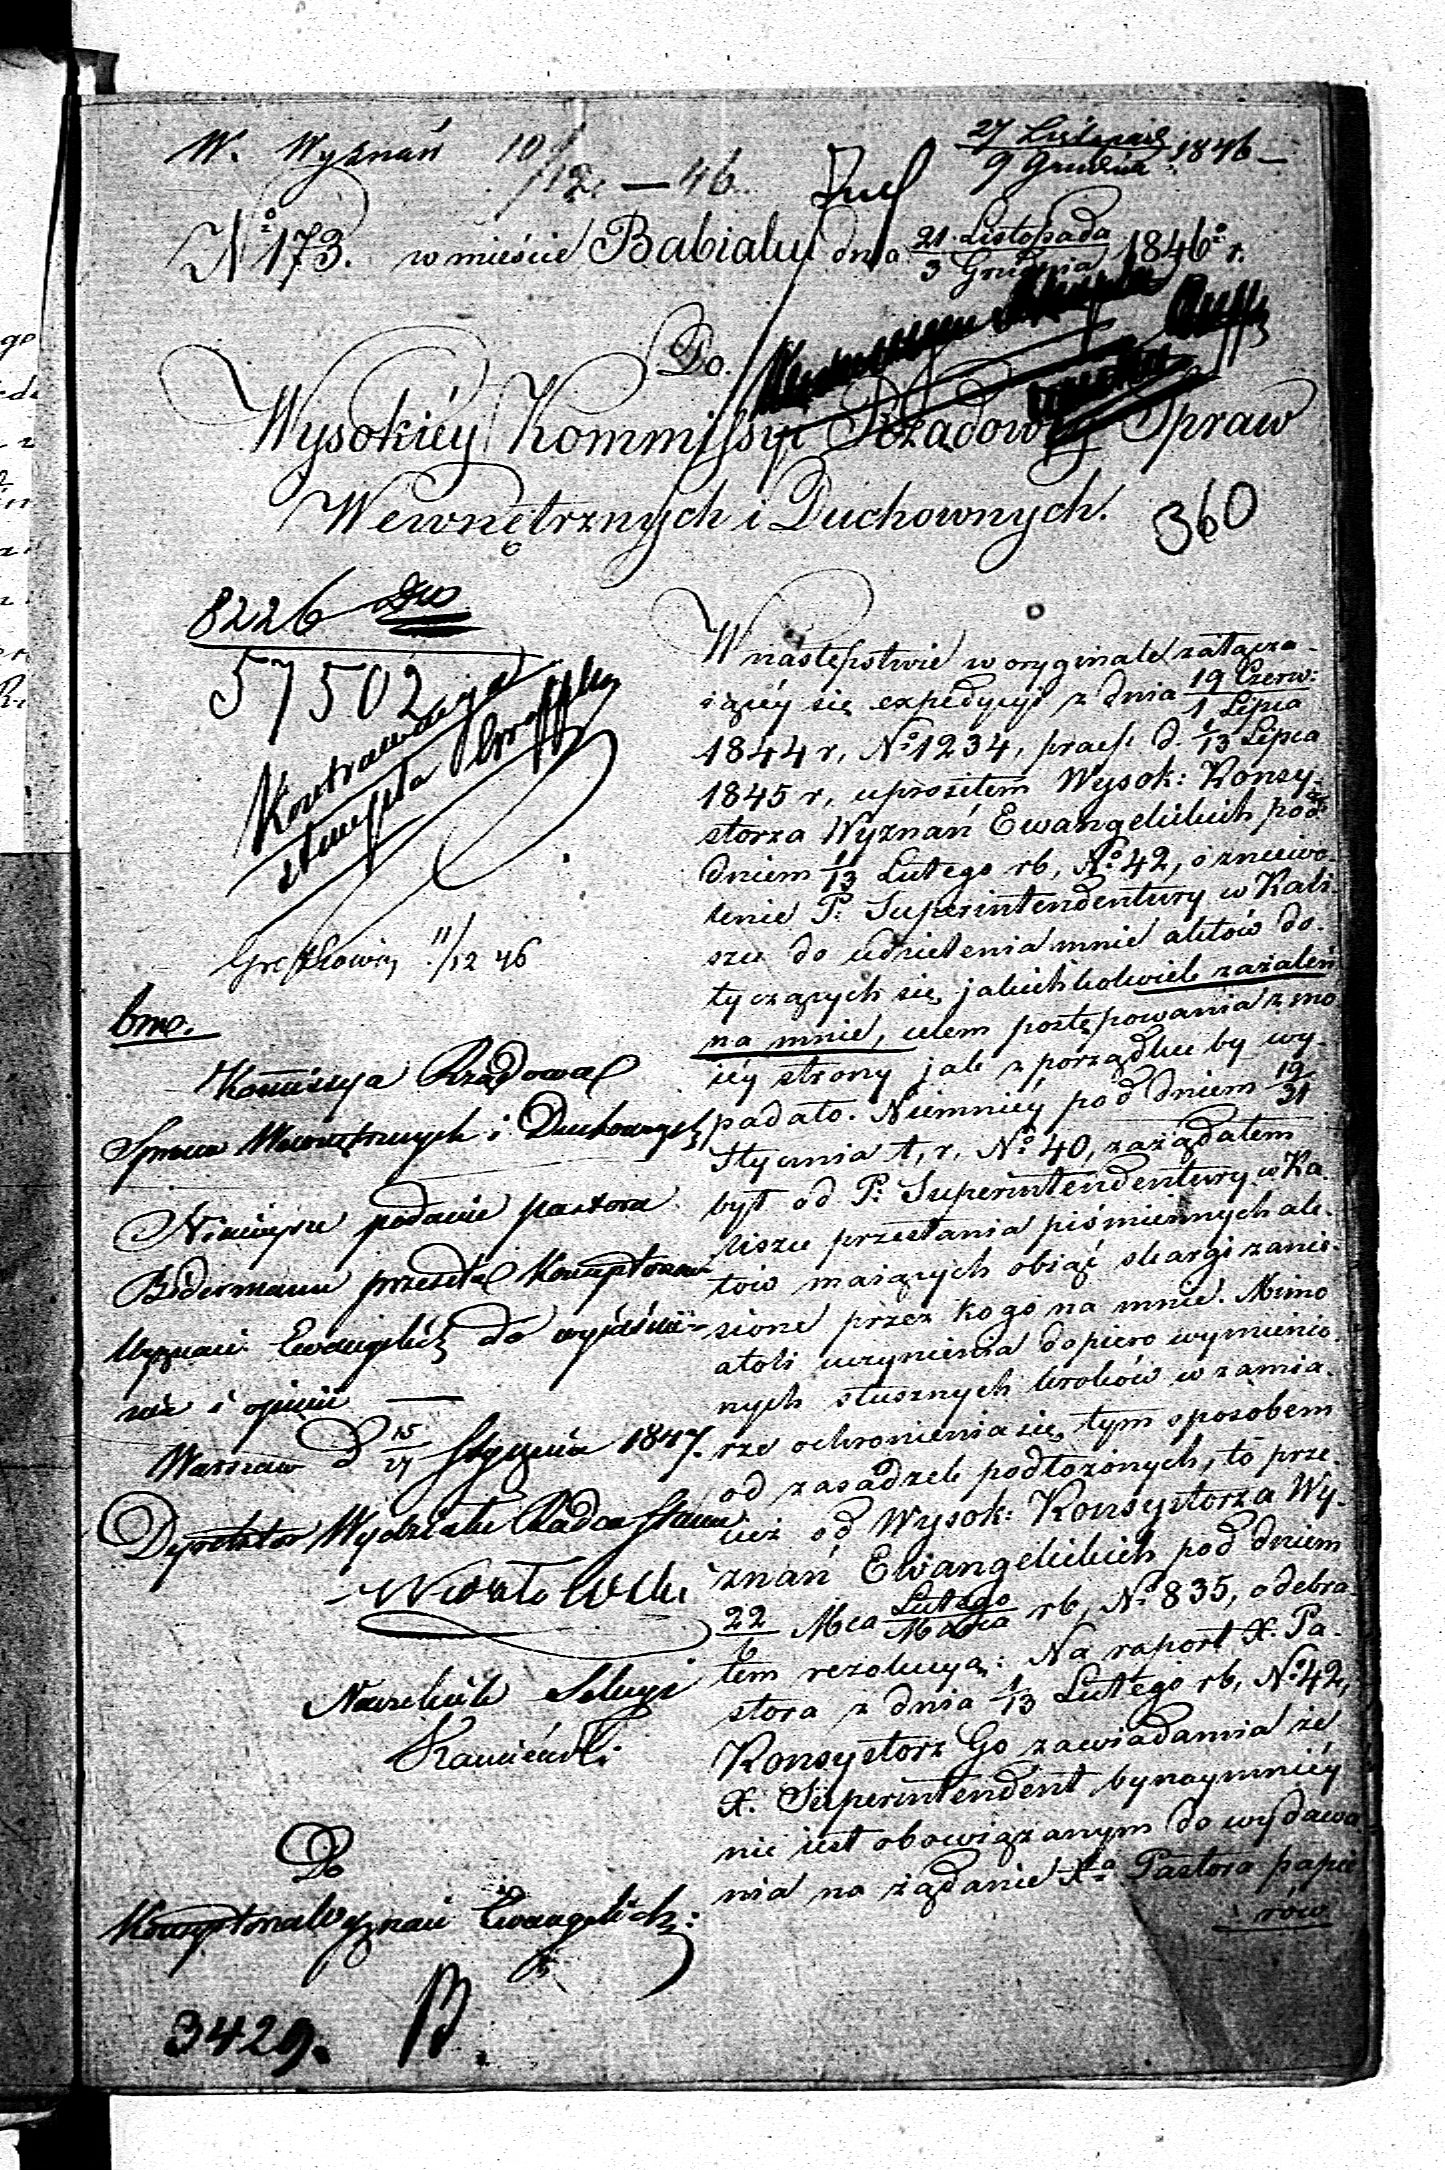 W. Wyznań 10/12. — 46.
27 Listopad / 9 Grudnia 1846 —
No 173. w mieście Babiaku dnia 21 Listopada / 3 Grudnia 1846o r.
Do.
Wysokiéy Kommissyi Rządowéy Spraw
Wewnętrznych i Duchownych.
360
8226
57502
Kontrawencya
stempla
11/12 46
bmo.
Kommissya Rządowa
Spraw Wewnętrznych i Duchownych
Niniejsze podanie pastora
Bidermann przesełał Konsystorzowi
Wyznań Ewangelick do wyjaśnie-
nia i opinii —
Warszaw d 15/27 Stycznia 1847.
Dyrektor Wydziału Radca Stanu
Naczelnik Sekcyi
Kamieński
Do
Konsystorza Wyznań Ewangelick:
3429. B.
W następstwie w oryginale załącza-
iącéy się expedycyi z dnia 19 Czerw: / 1 Lipca
1844 r, No 1234, praes. d. 1/13 Lipca
1845 r, uprosiłem Wysok: Konsy-
storza Wyznań Ewangelickich pod
dniem 1/13 Lutego rb, No 42, o zniewo-
lenie P: Superintendentury w Kali-
szu do udzielenia mnie aktów do-
tyczących się jakichkolwiek zażaleń
na mnie, celem postępowania z mo
iéy strony jak z porządku by wy-
padało. Niemniéy pod dniem 19/31
Stycznia t, r, No 40, zażądałem
był od P: Superintendentury w Ka-
liszu przesłania piśmiennych ak-
tów maiących obiąć skargi zanie-
sione przez kogo na mnie. Mimo
atoli uczynienia dopiero wymienio-
nych słusznych kroków w zamia-
rze ochronienia się tym sposobem
od zasadzek podłożonych, to prze-
cież od Wysok: Konsystorza Wy-
znań Ewangelickich pod dniem
22/6 Mca Lutego/Marca rb, No 835, odebra-
łem rezolucyą: Na raport X. Pa-
stora z dnia 1/13 Lutego rb, No 42,
Konsystorz Go zawiadamia że
X. Superintendent bynaymniéy
nie iest obowiązanym do wydawa-
nia na żądanie Xa Pastora papie
rów